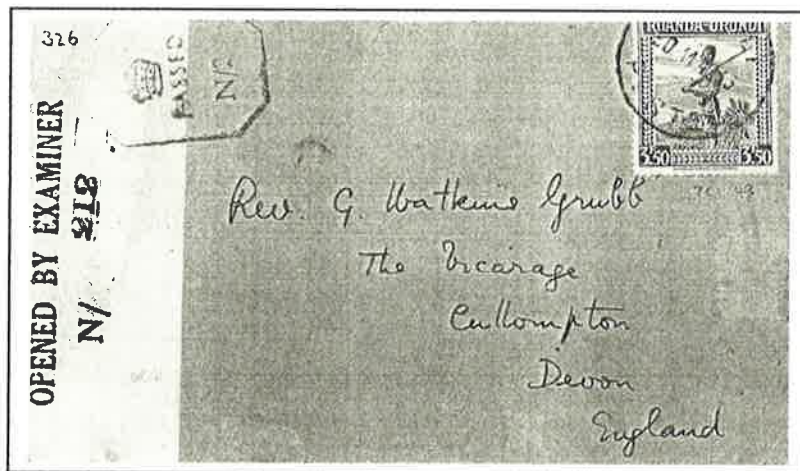 326
OPENED BY EXAMINER
N/ 212
PASSED
N/
RUANDA-URUNDI
3.50 3.50
Rev. G. Watkins Grubb
The Vicarage
Cullompton
Devon
England